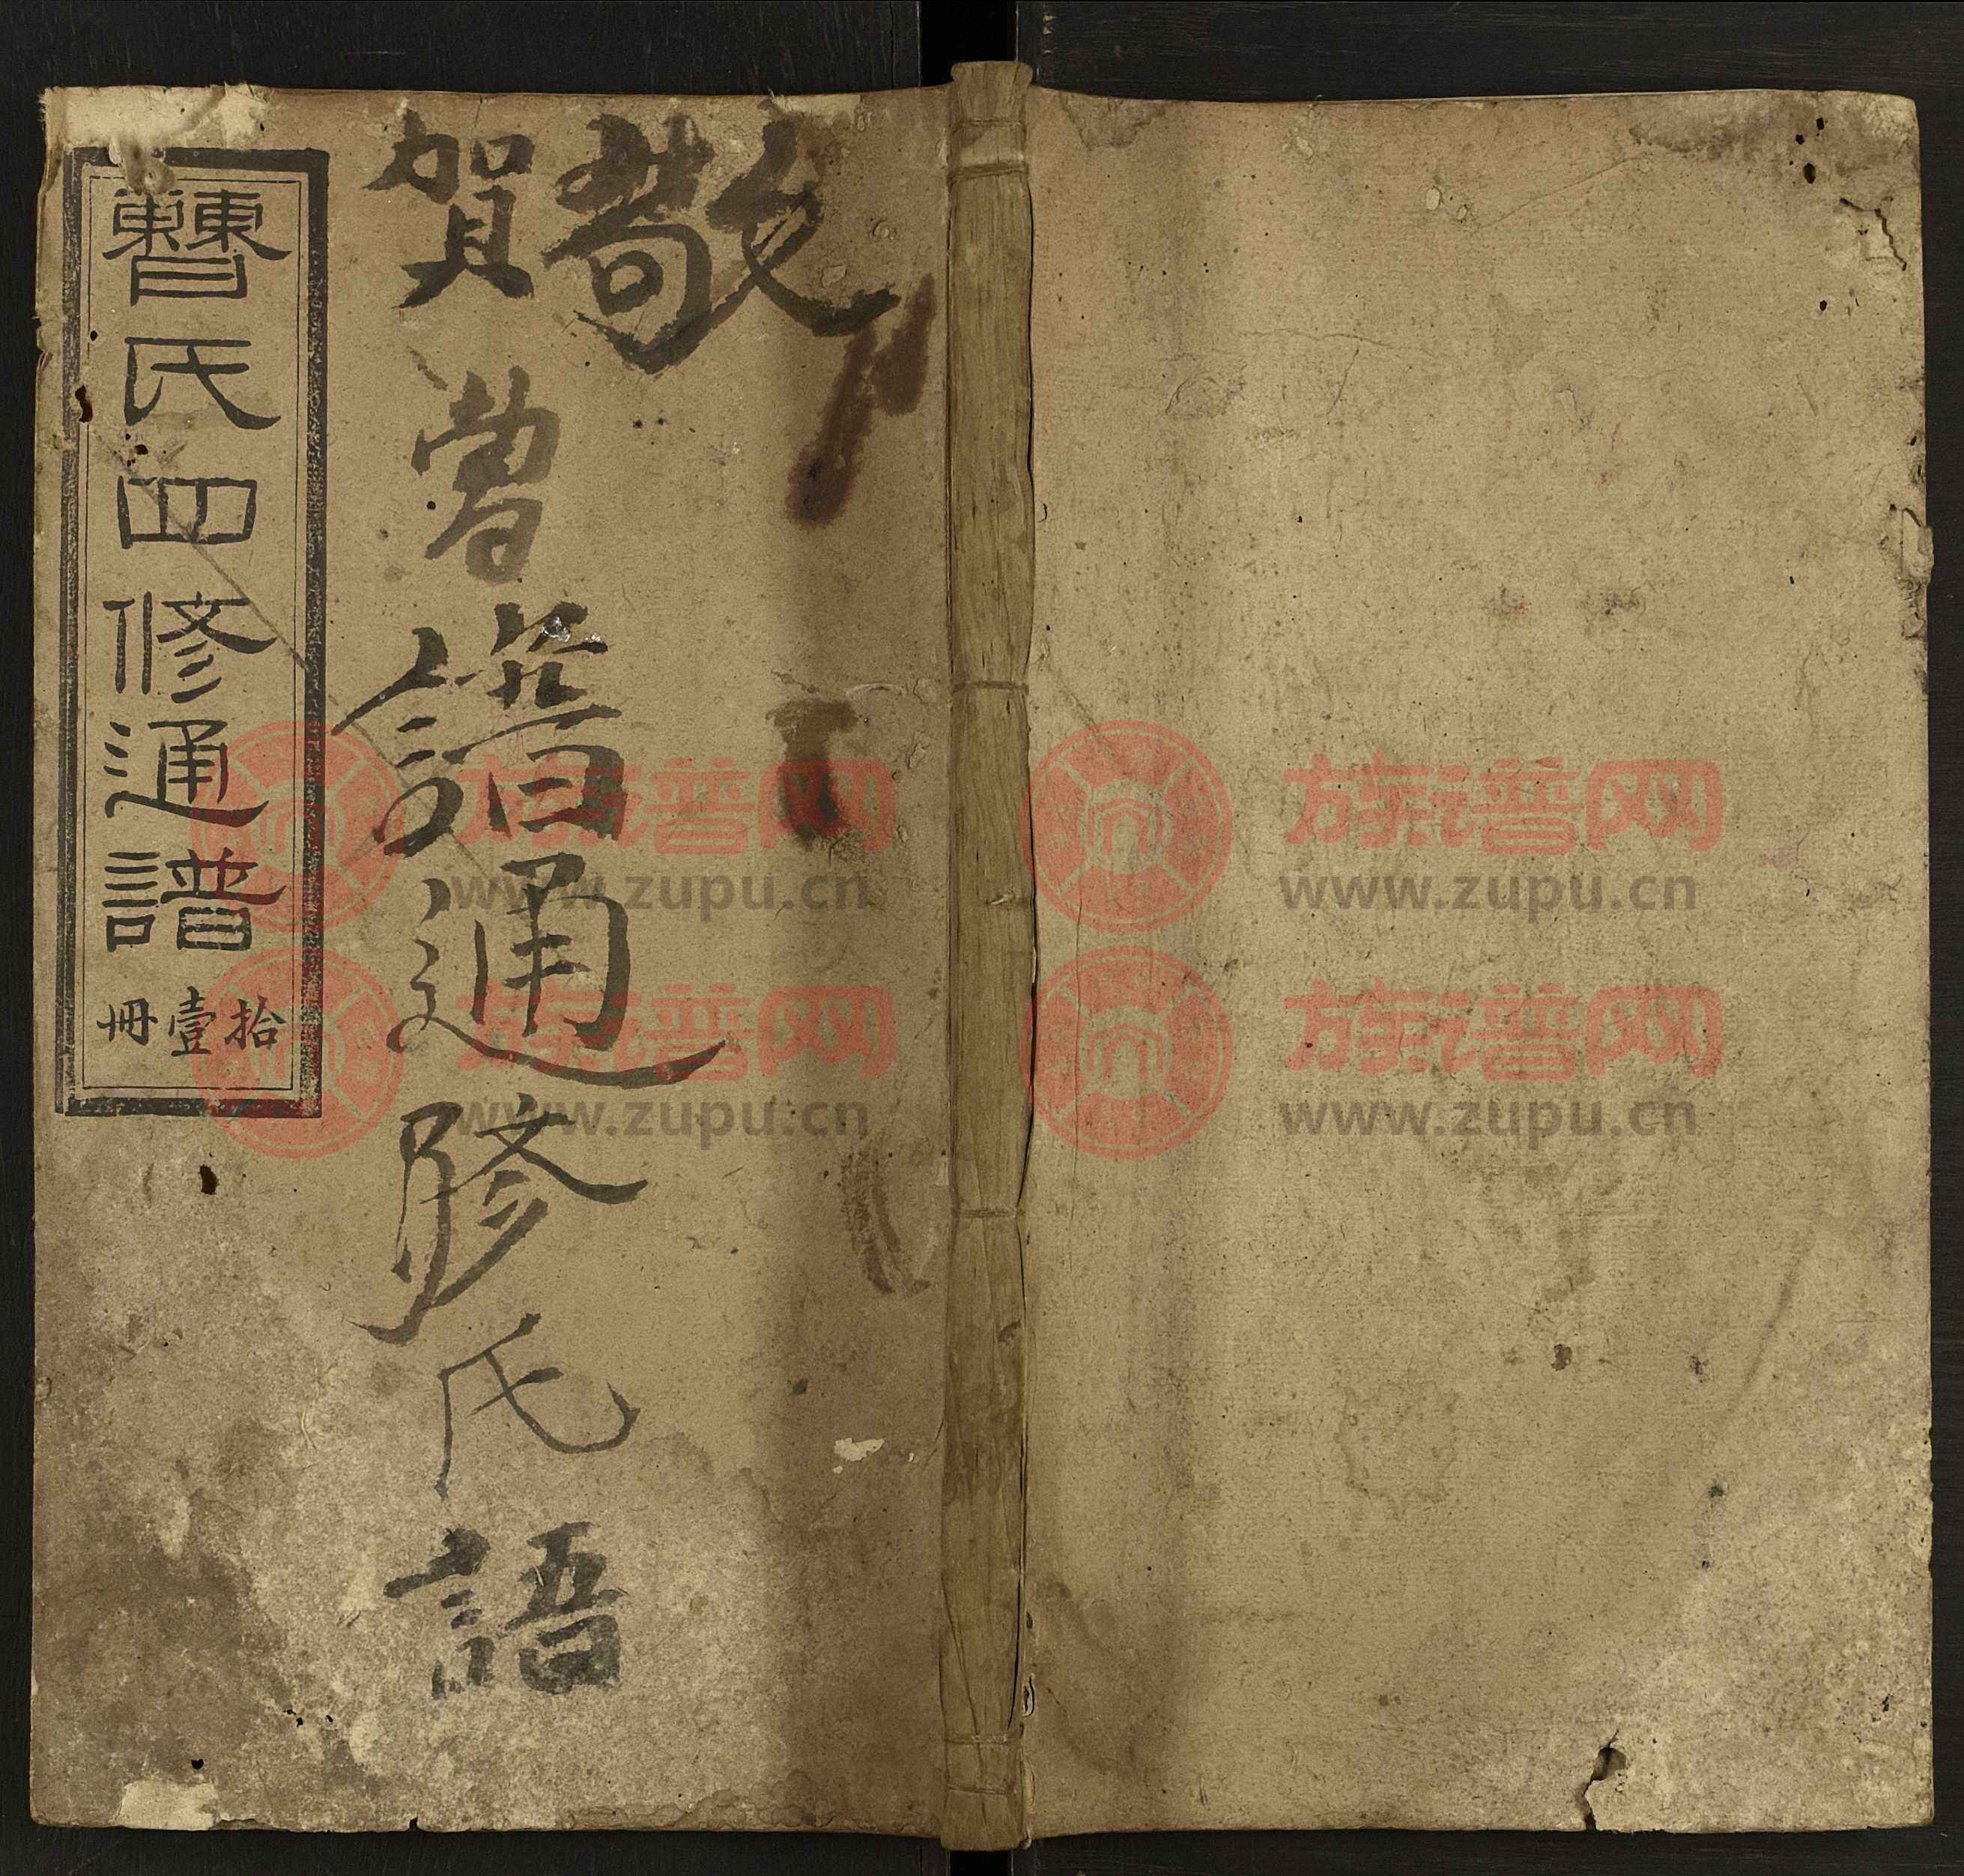 敬
賀曾譜通修氏語
曹氏四修通譜
拾壹冊
族谱网
www.zupu.cn
族谱网
www.zupu.cn
族谱网
www.zupu.cn
族谱网
www.zupu.cn